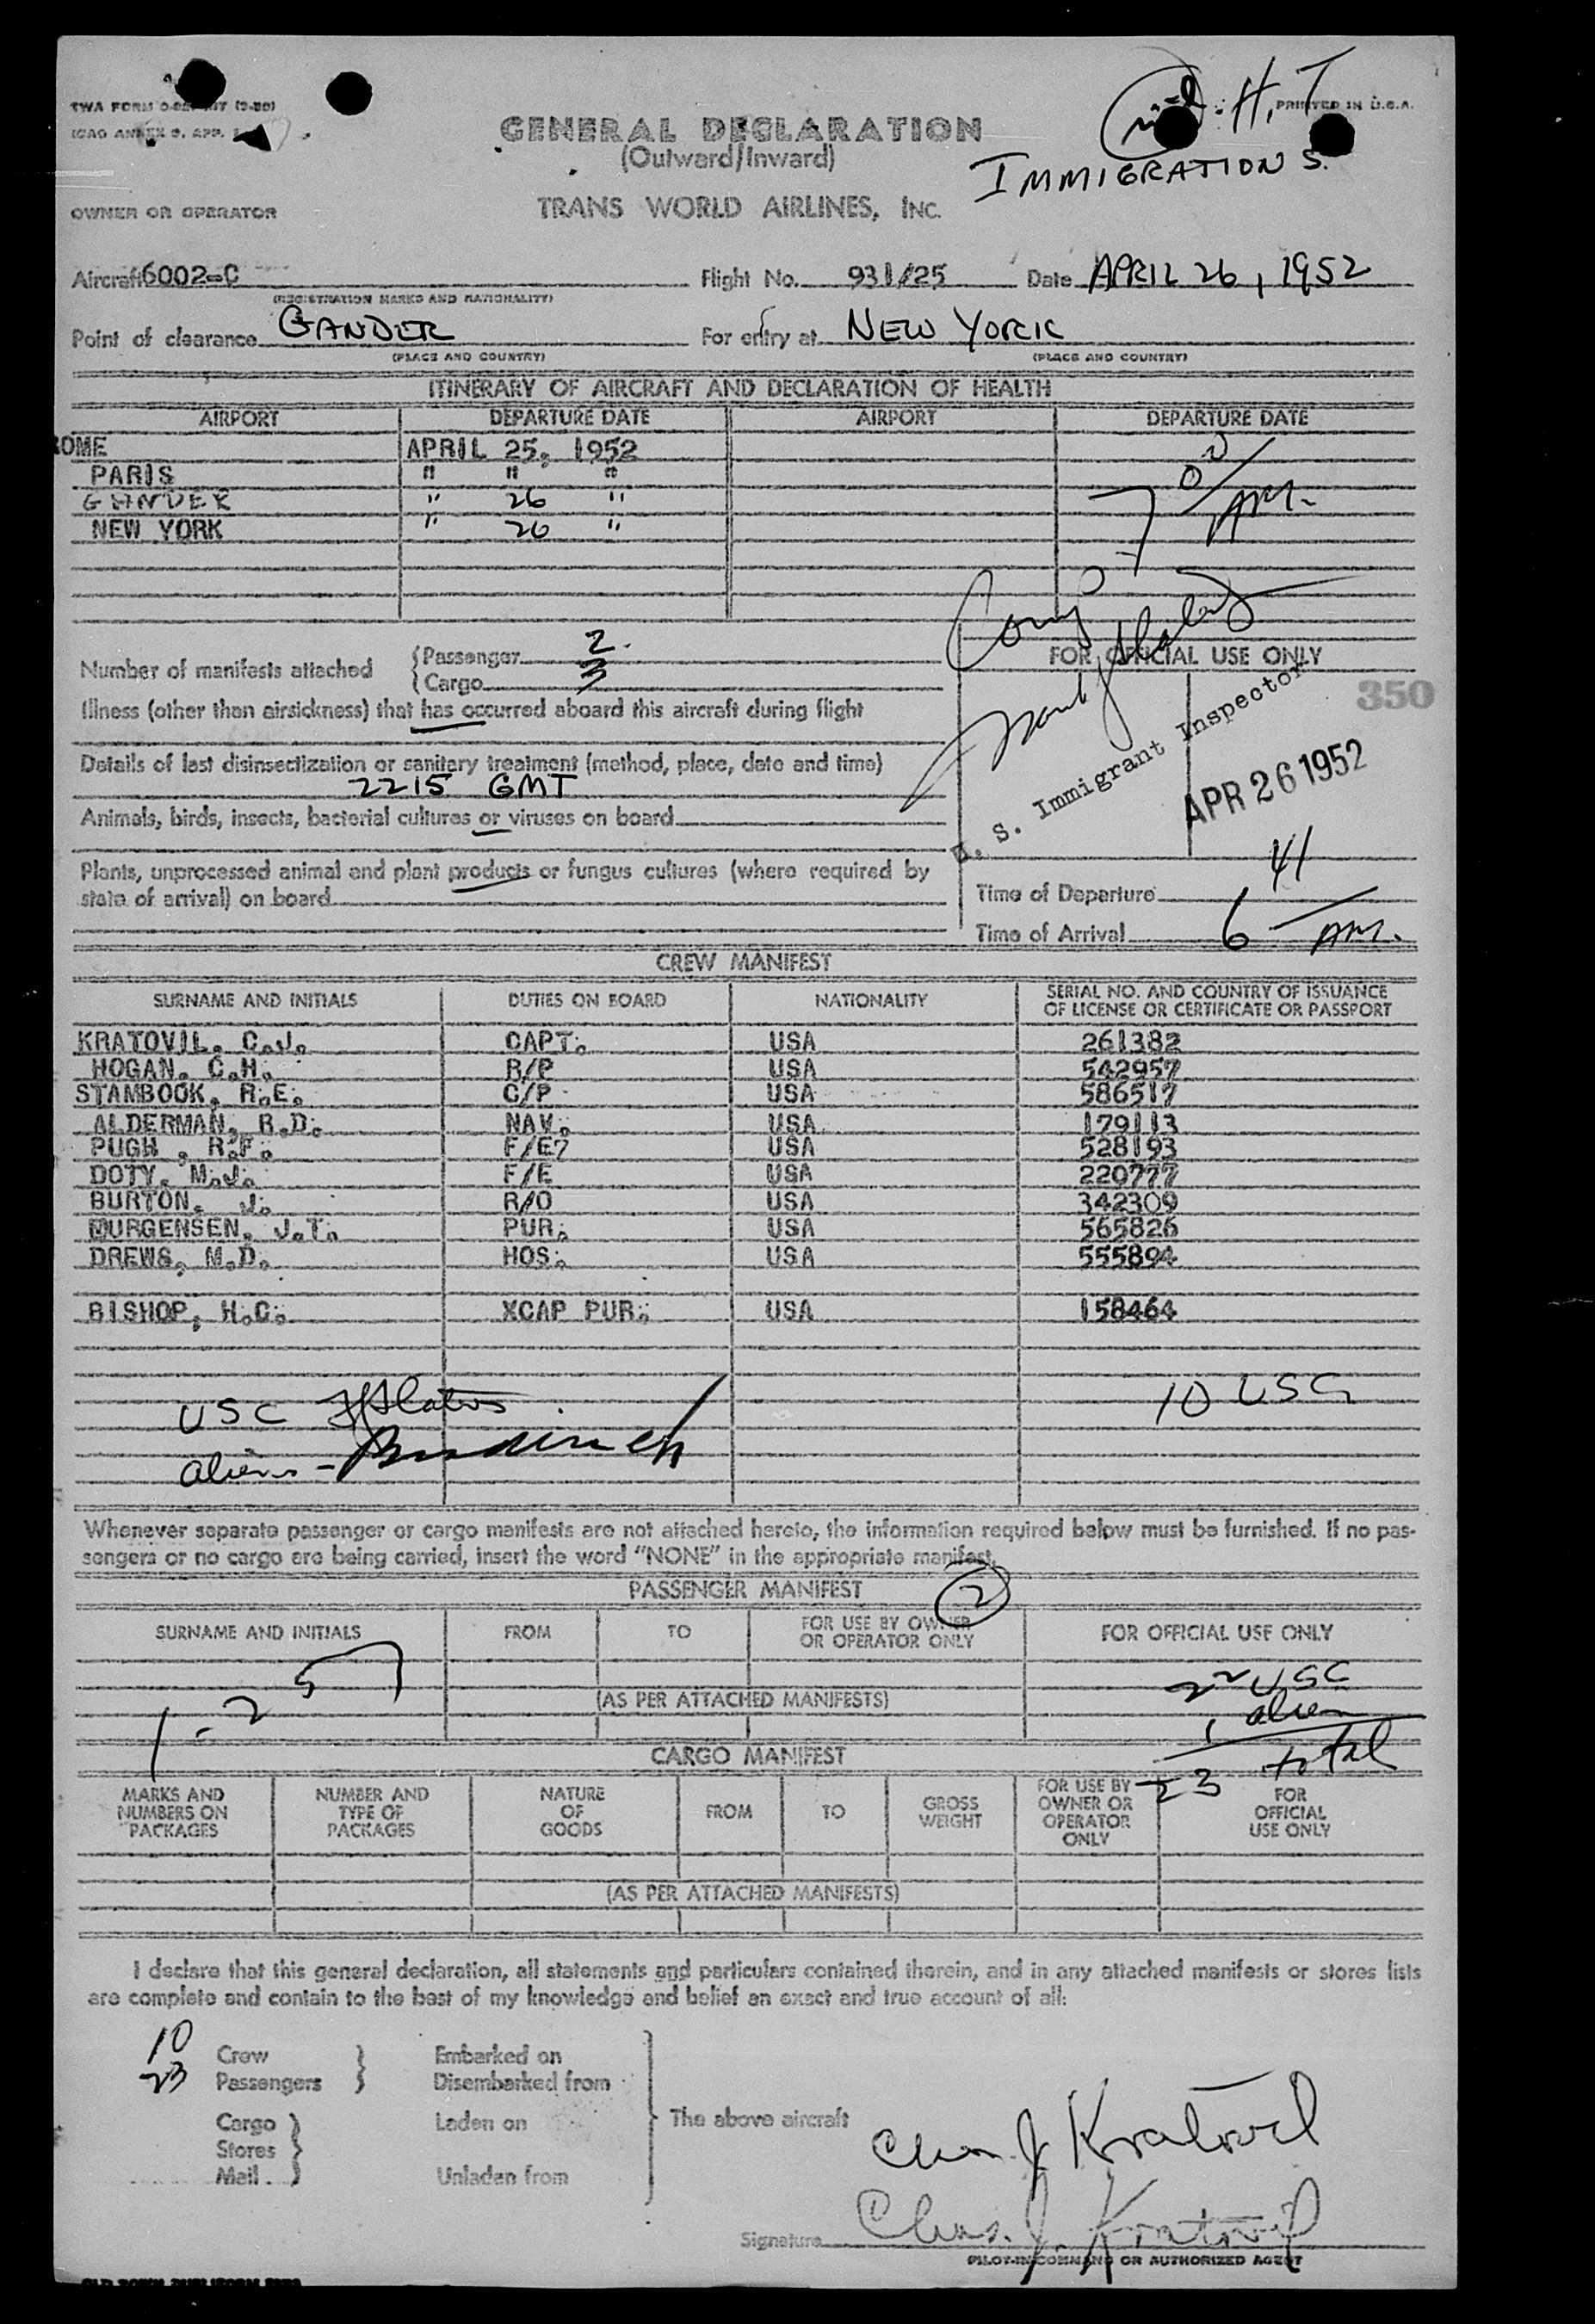 PRINTED IN U.S.A.
GENERAL DECLARATION
(Outward/Inward)
IMMIGRATION S.
OWNER OR OPERATOR TRANS WORLD AIRLINES, INC.
Aircraft 6002-C Flight No. 931/25 Date APRIL 26, 1952
(REGISTRATION MARKS AND NATIONALITY)
Point of clearance GANDER For entry at NEW YORK
(PLACE AND COUNTRY) (PLACE AND COUNTRY)
ITINERARY OF AIRCRAFT AND DECLARATION OF HEALTH
AIRPORT DEPARTURE DATE AIRPORT DEPARTURE DATE
ROME APRIL 25, 1952
PARIS " " "
GANDER " 26 "
NEW YORK " 26 "
7 00 AM.
Number of manifests attached
Passenger 2
Cargo 3
FOR OFFICIAL USE ONLY
350
Illness (other than airsickness) that has occurred aboard this aircraft during flight
Details of last disinsectization or sanitary treatment (method, place, date and time)
2215 GMT
Animals, birds, insects, bacterial cultures or viruses on board
U. S. Immigrant Inspector
APR 26 1952
Plants, unprocessed animal and plant products or fungus cultures (where required by
state of arrival) on board
Time of Departure
Time of Arrival 6 41 AM.
CREW MANIFEST
SURNAME AND INITIALS DUTIES ON BOARD NATIONALITY SERIAL NO. AND COUNTRY OF ISSUANCE
OF LICENSE OR CERTIFICATE OR PASSPORT
KRATOVIL, C.J. CAPT. USA 261382
HOGAN, C.H. R/P USA 542957
STAMBOOK, R.E. C/P USA 586517
ALDERMAN, R.D. NAV. USA 179113
PUGH , R.F. F/E7 USA 528193
DOTY, M.J. F/E USA 220777
BURTON, J. R/O USA 342309
DURGENSEN, J.T. PUR. USA 565826
DREWS, M.D. HOS. USA 555894
BISHOP, H.C. XCAP PUR. USA 158464
USC 10 USC
aliens -
Whenever separate passenger or cargo manifests are not attached hereto, the information required below must be furnished. If no pas-
sengers or no cargo are being carried, insert the word "NONE" in the appropriate manifest.
PASSENGER MANIFEST 2
SURNAME AND INITIALS FROM TO FOR USE BY OWNER
OR OPERATOR ONLY FOR OFFICIAL USE ONLY
22 USC
(AS PER ATTACHED MANIFESTS)
1 alien
23 total
1-25
CARGO MANIFEST
MARKS AND
NUMBERS ON
PACKAGES
NUMBER AND
TYPE OF
PACKAGES
NATURE
OF
GOODS
FROM
TO
GROSS
WEIGHT
FOR USE BY
OWNER OR
OPERATOR
ONLY
FOR
OFFICIAL
USE ONLY
(AS PER ATTACHED MANIFESTS)
I declare that this general declaration, all statements and particulars contained therein, and in any attached manifests or stores lists
are complete and contain to the best of my knowledge and belief an exact and true account of all:
10 Crew Embarked on
23 Passengers Disembarked from
Cargo Laden on The above aircraft
Stores
Mail Unladen from
Chas. J. Kratovil
Signature Chas. J. Kratovil
PILOT-IN-COMMAND OR AUTHORIZED AGENT